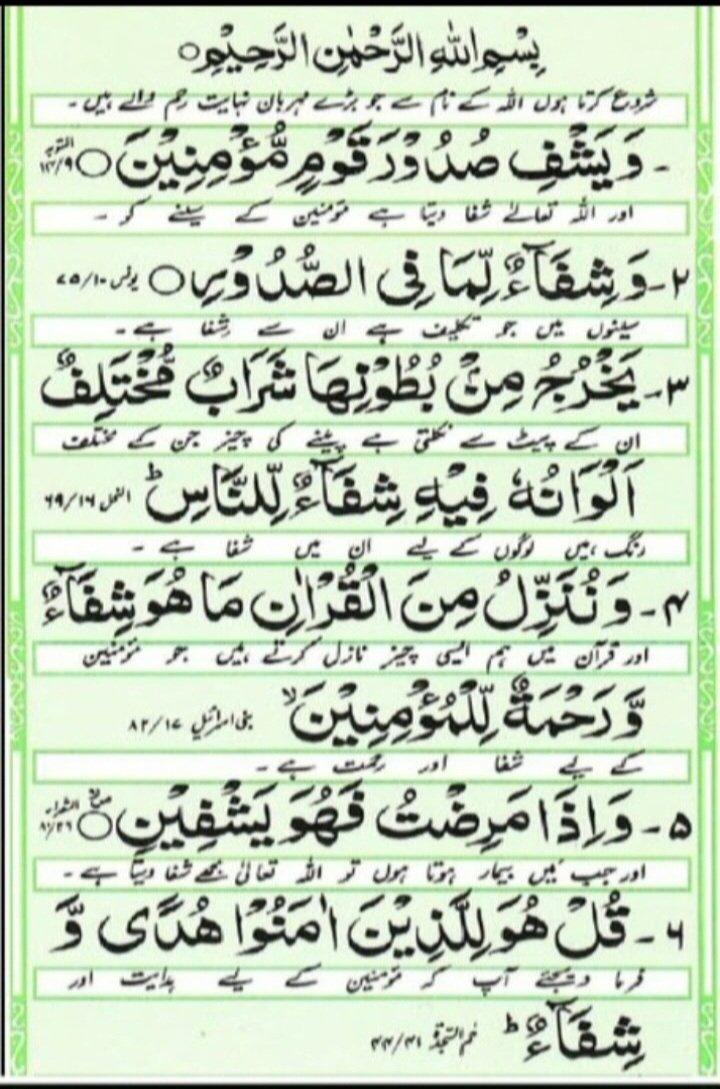 بِسْمِ اللهِ الرَّحْمٰنِ الرَّحِيْمِ○
شروع کرتا ہوں اللہ کے نام سے جو بڑے مہربان نہایت رحم والے ہیں۔
۔ وَيَشْفِ صُدُوْرَ قَوْمٍ مُّؤْمِنِيْنَ ○ التوبہ ۱۴/۹
اور اللہ تعالےٰ شفا دیتا ہے مؤمنین کے سینے کو ۔
۲۔ وَشِفَآءٌ لِّمَا فِى الصُّدُوْرِ ○ یونس ۷۵/۱۰
سینوں میں جو تکلیف ہے ان سے شفا ہے۔
۳۔ يَخْرُجُ مِنْۢ بُطُوْنِهَا شَرَابٌ مُّخْتَلِفٌ
ان کے پیٹ سے نکلتی ہے پینے کی چیز جن کے مختلف
اَلْوَانُهٗ فِيْهِ شِفَآءٌ لِّلنَّاسِ ؕ النحل ۶۹/۱۶
رنگ ہیں لوگوں کے لیے ان میں شفا ہے ۔
۴۔ وَنُنَزِّلُ مِنَ الْقُرْاٰنِ مَا هُوَ شِفَآءٌ
اور قرآن میں ہم ایسی چیز نازل کرتے ہیں جو مؤمنین
وَّرَحْمَةٌ لِّلْمُؤْمِنِيْنَ ۙ بنی اسرائیل ۸۲/۱۷
کے لیے شفا اور رحمت ہے ۔
۵۔ وَاِذَا مَرِضْتُ فَهُوَ يَشْفِيْنِ ○ الشعراء ۸۰/۲۶
اور جب میں بیمار ہوتا ہوں تو اللہ تعالیٰ مجھے شفا دیتا ہے۔
۶۔ قُلْ هُوَ لِلَّذِيْنَ اٰمَنُوْا هُدًى وَّ
فرما دیجئے آپ کہ مؤمنین کے لیے ہدایت اور
شِفَآءٌ ؕ حٰم السجدۃ ۴۴/۴۱